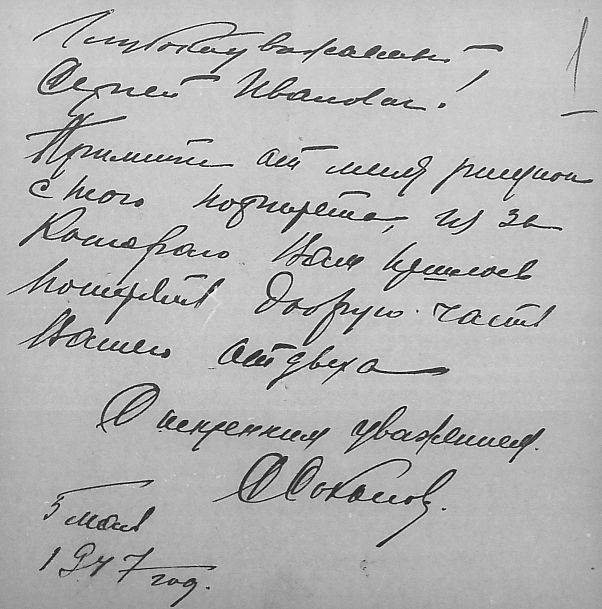 1
Глубокоуважаемый
Сергей Иванович!
Примите от меня рисунок
с того портрета, из за
которого Вам пришлось
потерять добрую часть
Вашего отдыха
С искренним уважением.
С Соколов.
5 мая
1947 год.